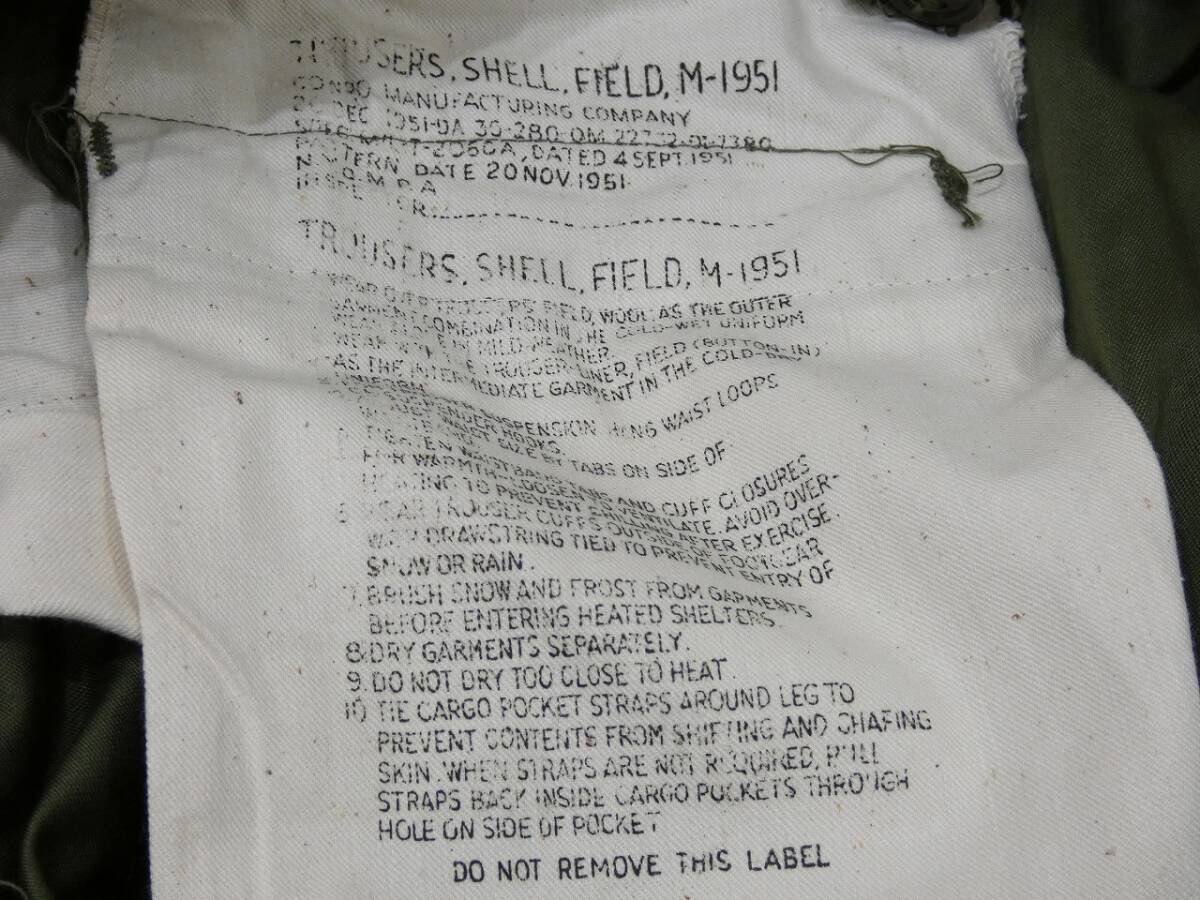 TROUSERS, SHELL, FIELD, M-1951
MANUFACTURING COMPANY
DEC 1951-DA 30-280-QM
DATED 4 SEPT. 1951
PATTERN DATE 20 NOV. 1951
N.Q.M.P.A.
INSPECTOR
TROUSERS, SHELL, FIELD, M-1951
WEAR OVER TROUSERS, FIELD, WOOL: AS THE OUTER
GARMENT COMBINATION IN THE COLD-WET UNIFORM
MILD WEATHER.
WEAR TROUSER LINER, FIELD (BUTTON-IN)
AS THE INTERMEDIATE GARMENT IN THE COLD-DRY
UNIFORM. WAIST LOOPS
SUSPENDER HOOKS.
WAIST SIZE BY TABS ON SIDE OF
TIGHTEN WAISTBAND TABS AND CUFF CLOSURES
FOR WARMTH-LOOSEN TO VENTILATE. AVOID OVER-
HEATING TO PREVENT CHILLING AFTER EXERCISE.
6. WEAR TROUSER CUFFS OUTSIDE OF FOOTGEAR
DRAWSTRING TIED TO PREVENT ENTRY OF
SNOW OR RAIN.
7. BRUSH SNOW AND FROST FROM GARMENTS
BEFORE ENTERING HEATED SHELTERS.
8. DRY GARMENTS SEPARATELY.
9. DO NOT DRY TOO CLOSE TO HEAT.
10. TIE CARGO POCKET STRAPS AROUND LEG TO
PREVENT CONTENTS FROM SHIFTING AND CHAFING
SKIN. WHEN STRAPS ARE NOT REQUIRED, PULL
STRAPS BACK INSIDE CARGO POCKETS THROUGH
HOLE ON SIDE OF POCKET
DO NOT REMOVE THIS LABEL